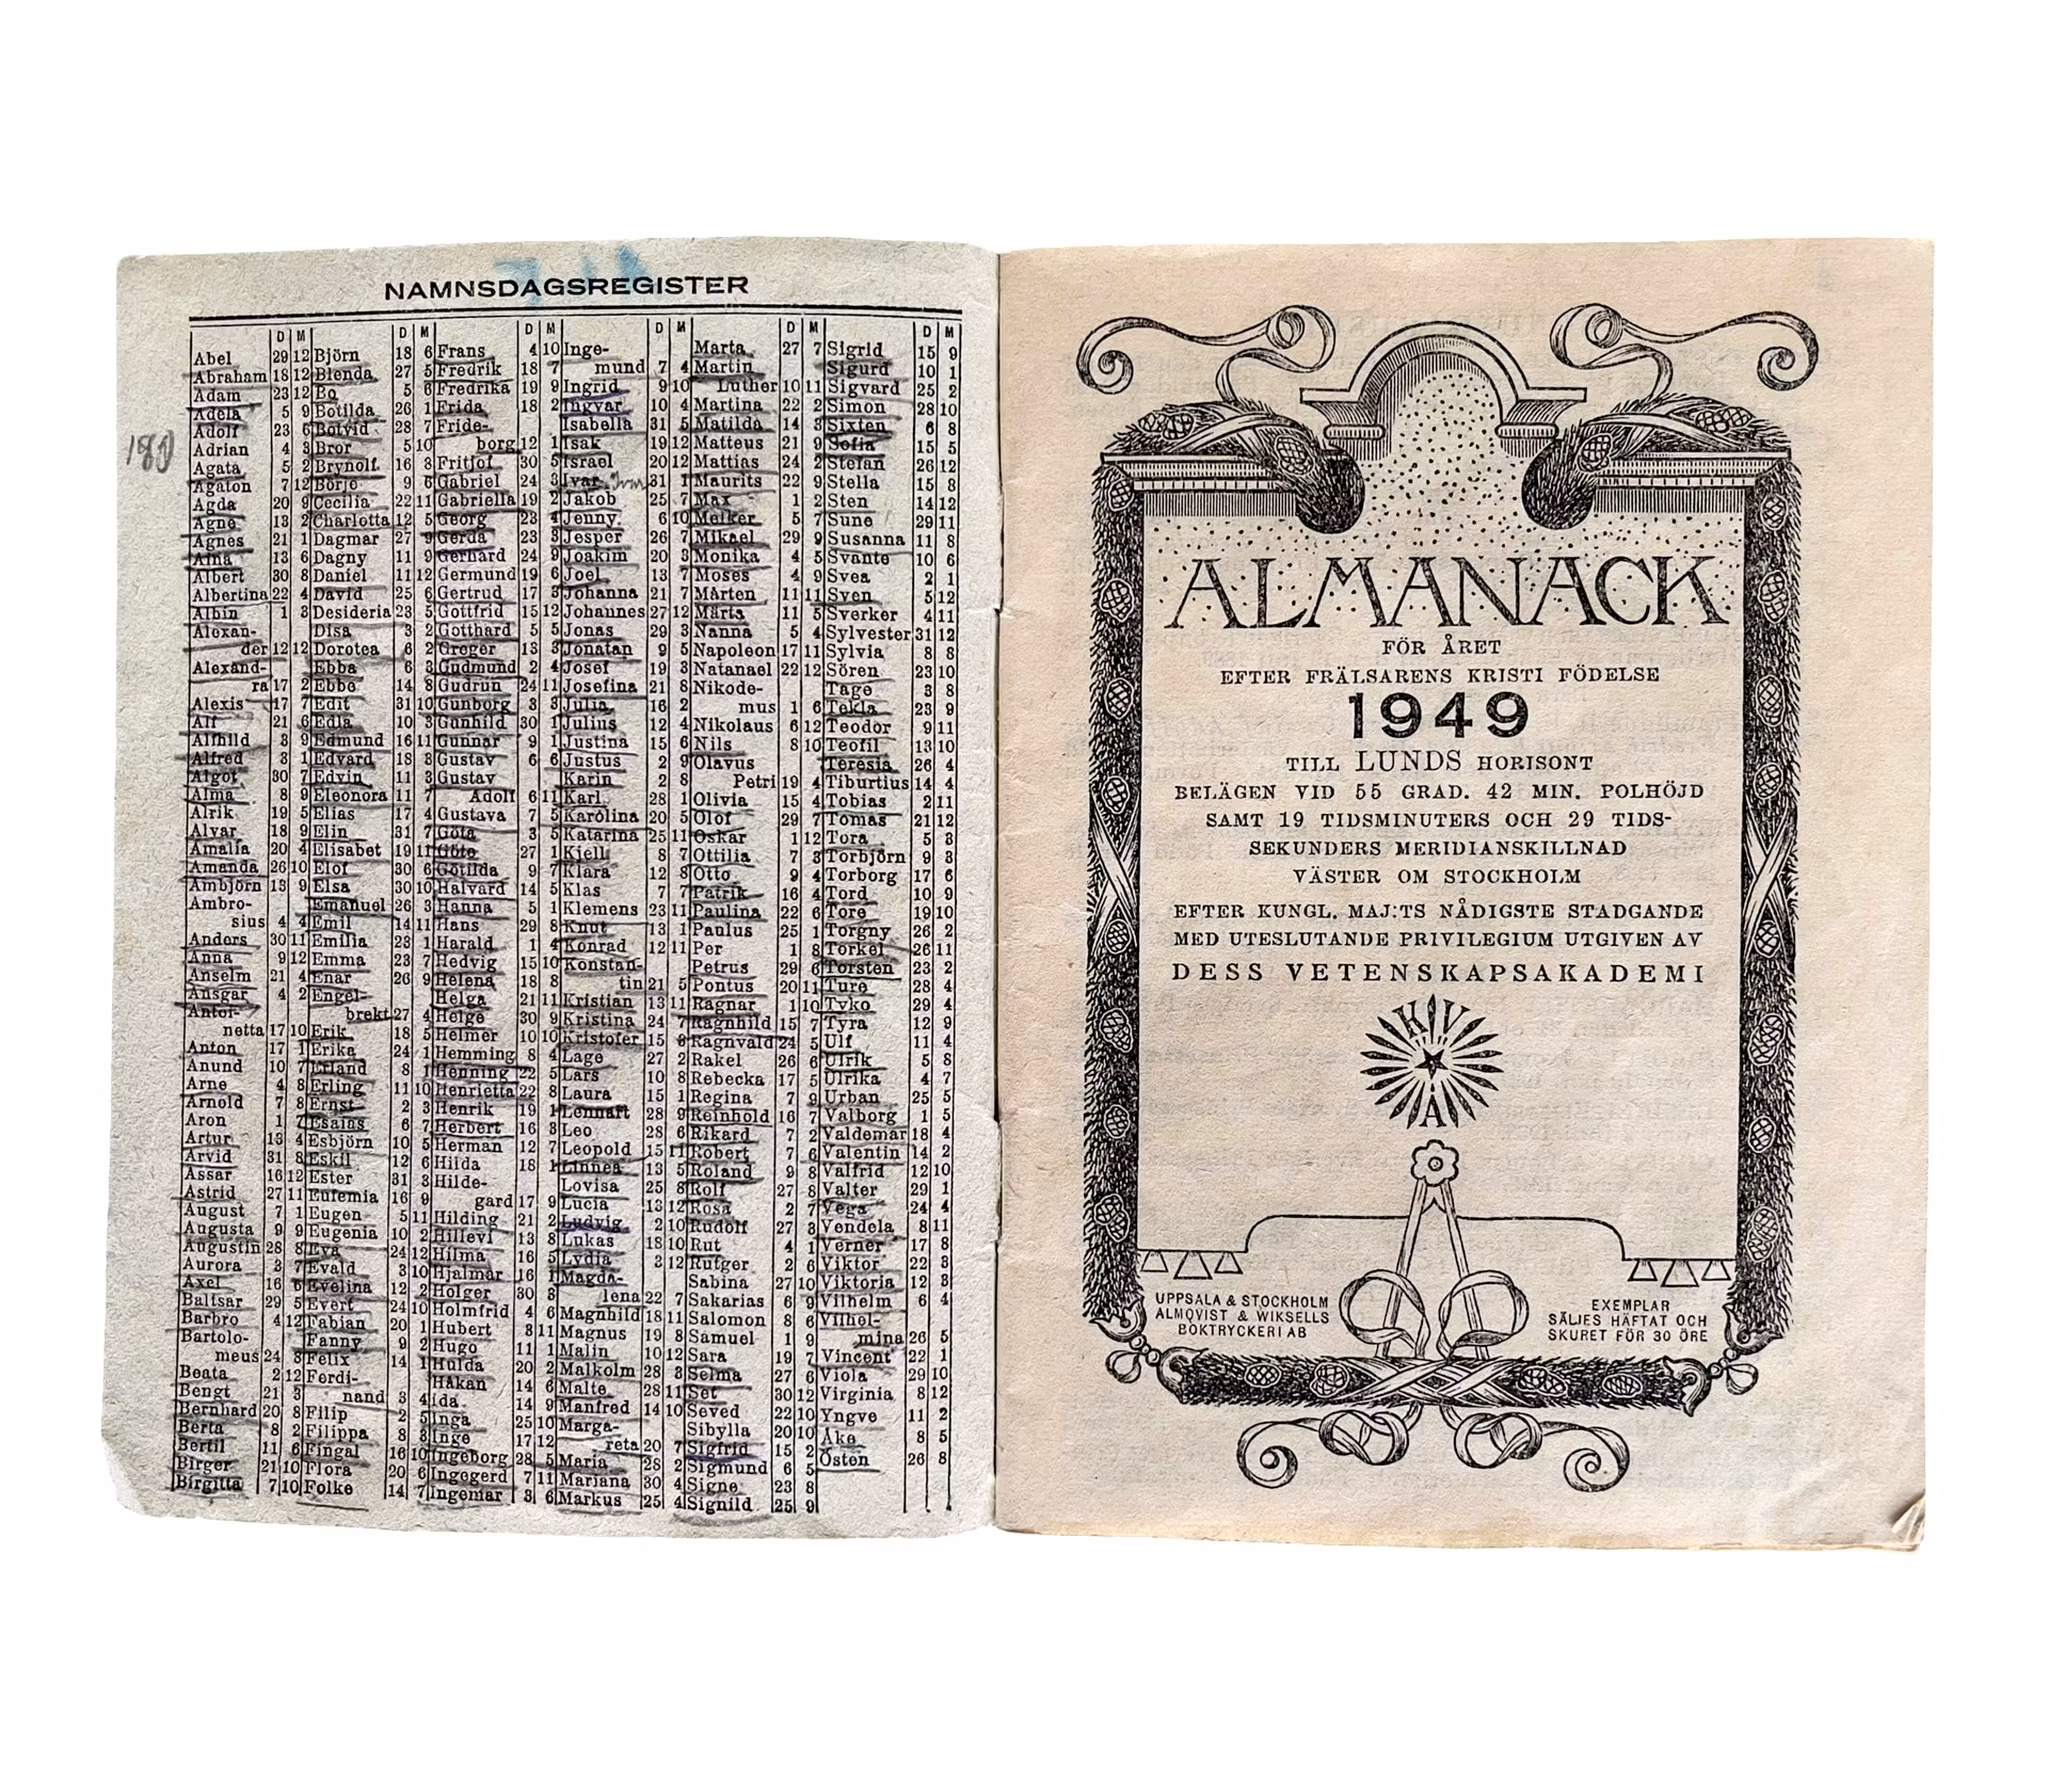 NAMNSDAGSREGISTER
D M
Abel 29 12
Abraham 18 12
Adam 23 12
Adela 5 9
Adolf 23 6
Adrian 4 3
Agata 5 2
Agaton 7 12
Agda 20 9
Agne 13 2
Agnes 21 1
Aina 13 6
Albert 30 8
Albertina 22 4
Albin 1 3
Alexan-
der 12 12
Alexand-
ra 17 2
Alexis 17 7
Alf 21 6
Alfhild 3 9
Alfred 3 1
Algot 30 7
Alma 8 9
Alrik 19 5
Alvar 18 9
Amalia 20 4
Amanda 26 10
Ambjörn 13 9
Ambro-
sius 4 4
Anders 30 11
Anna 9 12
Anselm 21 4
Ansgar 4 2
Antoi-
netta 17 10
Anton 17 1
Anund 10 7
Arne 4 8
Arnold 7 8
Aron 1 7
Artur 13 4
Arvid 31 8
Assar 16 12
Astrid 27 11
August 7 1
Augusta 9 9
Augustin 28 8
Aurora 3 7
Axel 16 6
Baltsar 29 5
Barbro 4 12
Bartolo-
meus 24 8
Beata 2 12
Bengt 21 3
Bernhard 20 8
Berta 8 2
Bertil 11 6
Birger 21 10
Birgitta 7 10
D M
Björn 18 6
Blenda 27 5
Bo 5 6
Botilda 26 1
Botvid 28 7
Bror 5 10
Brynolf 16 8
Börje 9 6
Cecilia 22 11
Charlotta 12 5
Dagmar 27 9
Dagny 11 9
Daniel 11 12
David 25 6
Desideria 23 5
Disa 3 2
Dorotea 6 2
Ebba 6 3
Ebbe 14 8
Edit 31 10
Edla 10 3
Edmund 16 11
Edvard 18 3
Edvin 11 3
Eleonora 11 7
Elias 17 4
Elin 31 7
Elisabet 19 11
Elof 30 6
Elsa 30 10
Emanuel 26 3
Emil 14 11
Emilia 23 1
Emma 23 7
Enar 26 9
Engel-
brekt 27 4
Erik 18 5
Erika 24 1
Erland 8 1
Erling 11 10
Ernst 2 3
Esaias 6 7
Esbjörn 10 5
Eskil 12 6
Ester 31 3
Eufemia 16 9
Eugen 5 11
Eugenia 10 2
Eva 24 12
Evald 3 10
Evelina 12 2
Evert 24 10
Fabian 20 1
Fanny 9 2
Felix 14 1
Ferdi-
nand 3 4
Filip 2 5
Filippa 8 3
Fingal 16 10
Flora 20 6
Folke 14 7
D M
Frans 4 10
Fredrik 18 7
Fredrika 19 9
Frida 18 2
Fride-
borg 12 1
Fritjof 30 5
Gabriel 24 3
Gabriella 19 2
Georg 23 4
Gerda 23 3
Gerhard 24 9
Germund 19 6
Gertrud 17 3
Gottfrid 15 12
Gotthard 5 5
Greger 13 3
Gudmund 2 4
Gudrun 24 11
Gunborg 3 3
Gunhild 30 1
Gunnar 9 1
Gustav 6 6
Gustav
Adolf 6 11
Gustava 7 5
Göta 3 5
Göte 27 1
Götilda 9 7
Halvard 14 5
Hanna 5 1
Hans 29 8
Harald 1 4
Hedvig 15 10
Helena 18 8
Helga 21 11
Helge 30 9
Helmer 10 10
Hemming 8 4
Henning 22 5
Henrietta 22 8
Henrik 19 1
Herbert 16 3
Herman 12 7
Hilda 18 1
Hilde-
gard 17 9
Hilding 21 2
Hillevi 13 8
Hilma 16 5
Hjalmar 16 1
Holger 30 8
Holmfrid 4 6
Hubert 3 11
Hugo 11 1
Hulda 20 2
Håkan 14 6
Ida 14 9
Inga 25 10
Inge 17 12
Ingeborg 28 5
Ingegerd 7 11
Ingemar 3 6
D M
Inge-
mund 7 4
Ingrid 9 10
Ingvar 10 4
Isabella 31 5
Isak 19 12
Israel 20 12
Ivar 31 1
Jakob 25 7
Jenny 6 10
Jesper 26 7
Joakim 20 3
Joel 13 7
Johanna 21 7
Johannes 27 12
Jonas 29 3
Jonatan 9 5
Josef 19 3
Josefina 21 8
Julia 16 2
Julius 12 4
Justina 15 6
Justus 2 9
Karin 2 8
Karl 28 1
Karolina 20 5
Katarina 25 11
Kjell 8 7
Klara 12 8
Klas 7 7
Klemens 23 11
Knut 13 1
Konrad 12 11
Konstan-
tin 21 5
Kristian 13 11
Kristina 24 7
Kristofer 15 8
Lage 27 2
Lars 10 8
Laura 15 1
Lennart 28 9
Leo 28 6
Leopold 15 11
Linnea 13 5
Lovisa 25 8
Lucia 13 12
Ludvig 2 10
Lukas 18 10
Lydia 3 12
Magda-
lena 22 7
Magnhild 18 11
Magnus 19 8
Malin 10 12
Malkolm 28 3
Malte 28 11
Manfred 14 10
Marga-
reta 20 7
Maria 28 2
Mariana 30 4
Markus 25 4
D M
Marta 27 7
Martin
Luther 10 11
Martina 22 2
Matilda 14 3
Matteus 21 9
Mattias 24 2
Maurits 22 9
Max 1 2
Melker 5 7
Mikael 29 9
Monika 4 5
Moses 4 9
Mårten 11 11
Märta 11 5
Nanna 5 4
Napoleon 17 11
Natanael 22 12
Nikode-
mus 1 6
Nikolaus 6 12
Nils 8 10
Olavus
Petri 19 4
Olivia 15 4
Olof 29 7
Oskar 1 12
Ottilia 7 3
Otto 9 4
Patrik 16 4
Paulina 22 6
Paulus 25 1
Per 1 8
Petrus 29 6
Pontus 20 11
Ragnar 1 10
Ragnhild 15 7
Ragnvald 24 5
Rakel 26 6
Rebecka 17 5
Regina 7 9
Reinhold 16 7
Rikard 7 2
Robert 7 6
Roland 9 8
Rolf 27 8
Rosa 2 7
Rudolf 27 3
Rut 4 1
Rutger 2 6
Sabina 27 10
Sakarias 6 9
Salomon 8 6
Samuel 1 9
Sara 19 7
Selma 27 6
Set 30 12
Seved 22 10
Sibylla 20 10
Sigfrid 15 2
Sigmund 6 5
Signe 23 8
Signild 25 9
D M
Sigrid 15 9
Sigurd 10 1
Sigvard 25 2
Simon 28 10
Sixten 6 8
Sofia 15 5
Stefan 26 12
Stella 15 8
Sten 14 12
Sune 29 11
Susanna 11 8
Svante 10 6
Svea 2 1
Sven 5 12
Sverker 4 11
Sylvester 31 12
Sylvia 8 8
Sören 23 10
Tage 3 8
Tekla 23 9
Teodor 9 11
Teofil 13 10
Teresia 26 4
Tiburtius 14 4
Tobias 2 11
Tomas 21 12
Tora 5 3
Torbjörn 9 3
Torborg 17 6
Tord 10 9
Tore 19 10
Torgny 26 2
Torkel 26 11
Torsten 23 2
Ture 28 4
Tyko 29 4
Tyra 12 9
Ulf 11 4
Ulrik 5 8
Ulrika 4 7
Urban 25 5
Valborg 1 5
Valdemar 18 4
Valentin 14 2
Valfrid 12 10
Valter 29 1
Vega 24 4
Vendela 8 11
Verner 17 8
Viktor 22 3
Viktoria 12 3
Vilhelm 6 4
Vilhel-
mina 26 5
Vincent 22 1
Viola 29 10
Virginia 8 12
Yngve 11 2
Åke 8 5
Östen 26 8
ALMANACK
FÖR ÅRET
EFTER FRÄLSARENS KRISTI FÖDELSE
1949
TILL LUNDS HORISONT
BELÄGEN VID 55 GRAD. 42 MIN. POLHÖJD
SAMT 19 TIDSMINUTERS OCH 29 TIDS-
SEKUNDERS MERIDIANSKILLNAD
VÄSTER OM STOCKHOLM
EFTER KUNGL. MAJ:TS NÅDIGSTE STADGANDE
MED UTESLUTANDE PRIVILEGIUM UTGIVEN AV
DESS VETENSKAPSAKADEMI
K V A
UPPSALA & STOCKHOLM
ALMQVIST & WIKSELLS
BOKTRYCKERI AB
EXEMPLAR
SÄLJES HÄFTAT OCH
SKURET FÖR 30 ÖRE